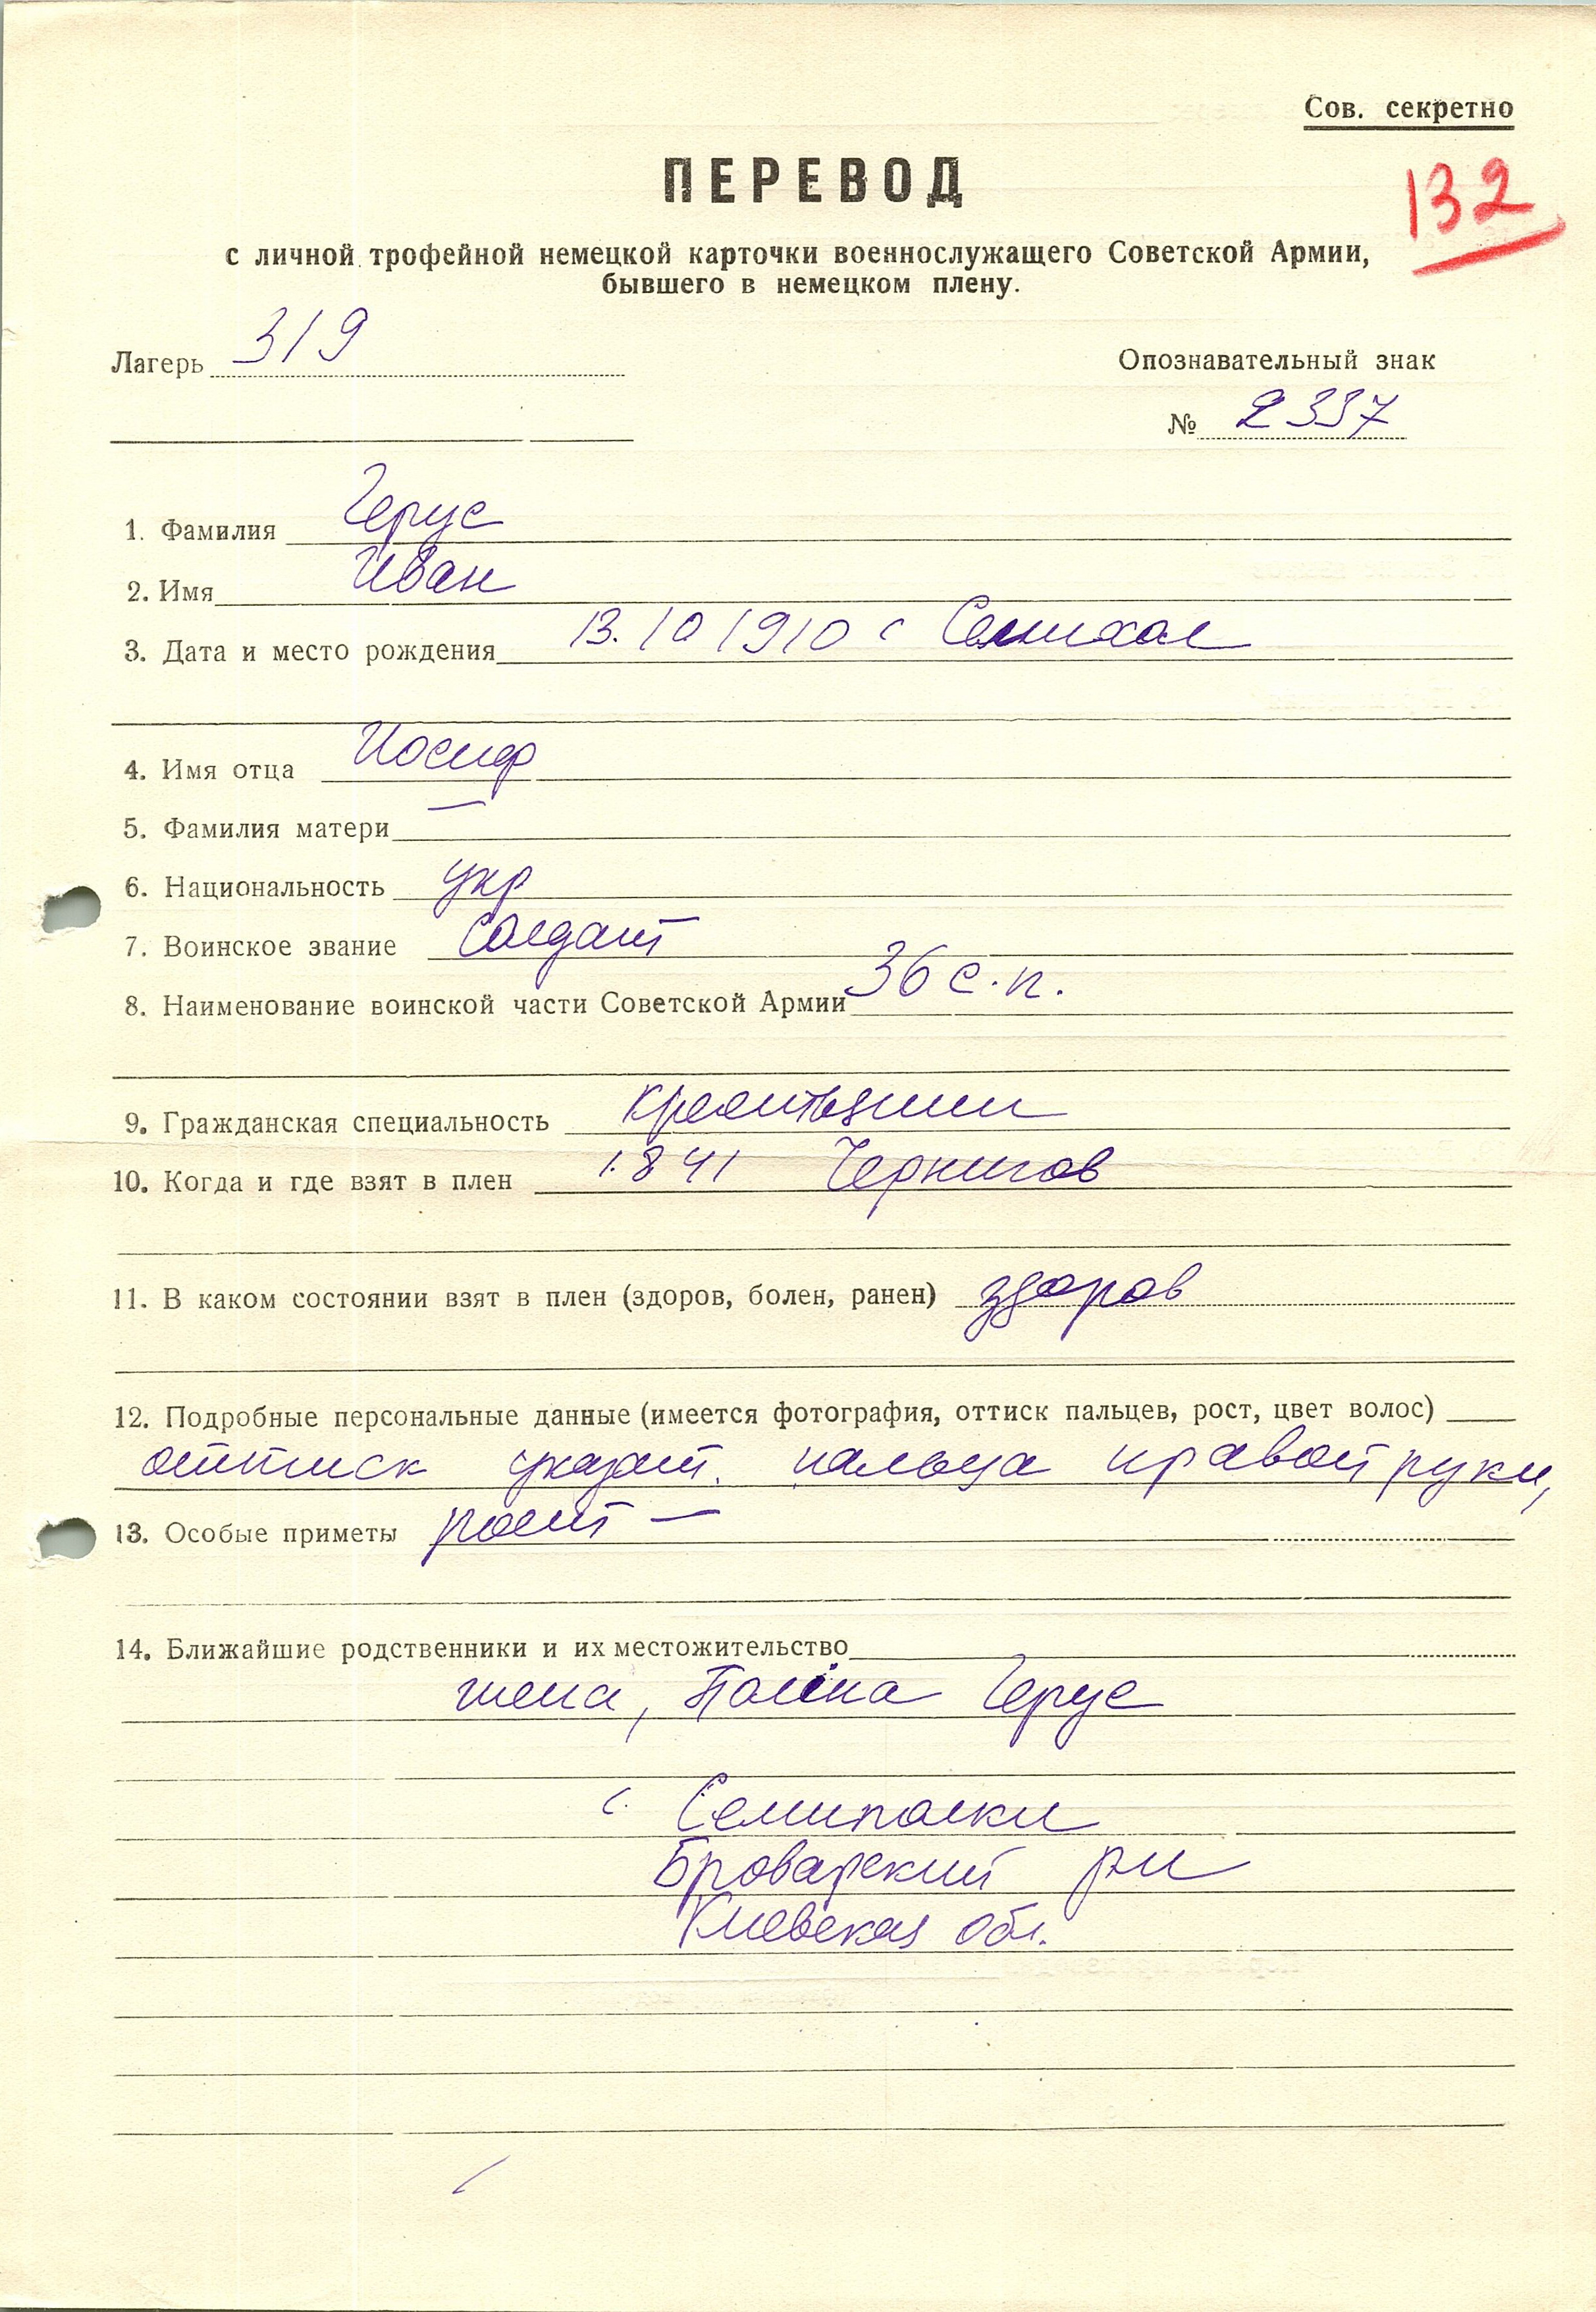 Сов. секретно
ПЕРЕВОД
132
с личной трофейной немецкой карточки военнослужащего Советской Армии,
бывшего в немецком плену.
Лагерь 319
Опознавательный знак
№ 2337
1. Фамилия Герус
2. Имя Иван
3. Дата и место рождения 13.10 1910 с
4. Имя отца Иосиф
5. Фамилия матери —
6. Национальность укр
7. Воинское звание Солдат
8. Наименование воинской части Советской Армии 36 с.п.
9. Гражданская специальность крестьянин
10. Когда и где взят в плен 1.8 41 Чернигов
11. В каком состоянии взят в плен (здоров, болен, ранен) здоров
12. Подробные персональные данные (имеется фотография, оттиск пальцев, рост, цвет волос)
оттиск указат. пальца правой руки,
13. Особые приметы рост —
14. Ближайшие родственники и их местожительство
жена, Герус
с. Семиполки
Броварский рн
Киевская обл.